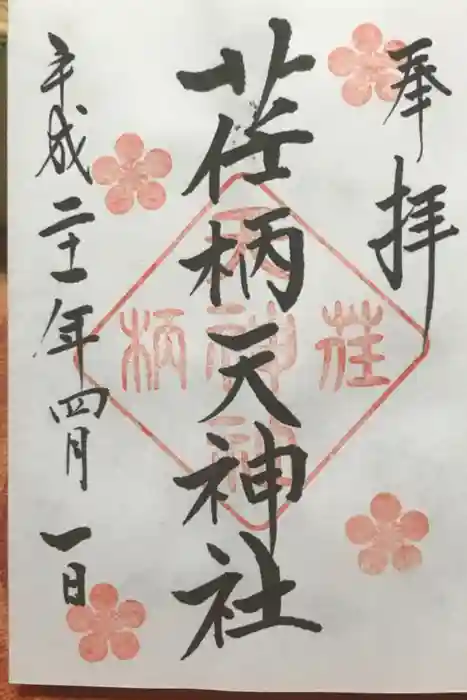 奉拝
荏柄天神社
荏
天神社
柄
平成二十一年四月一日